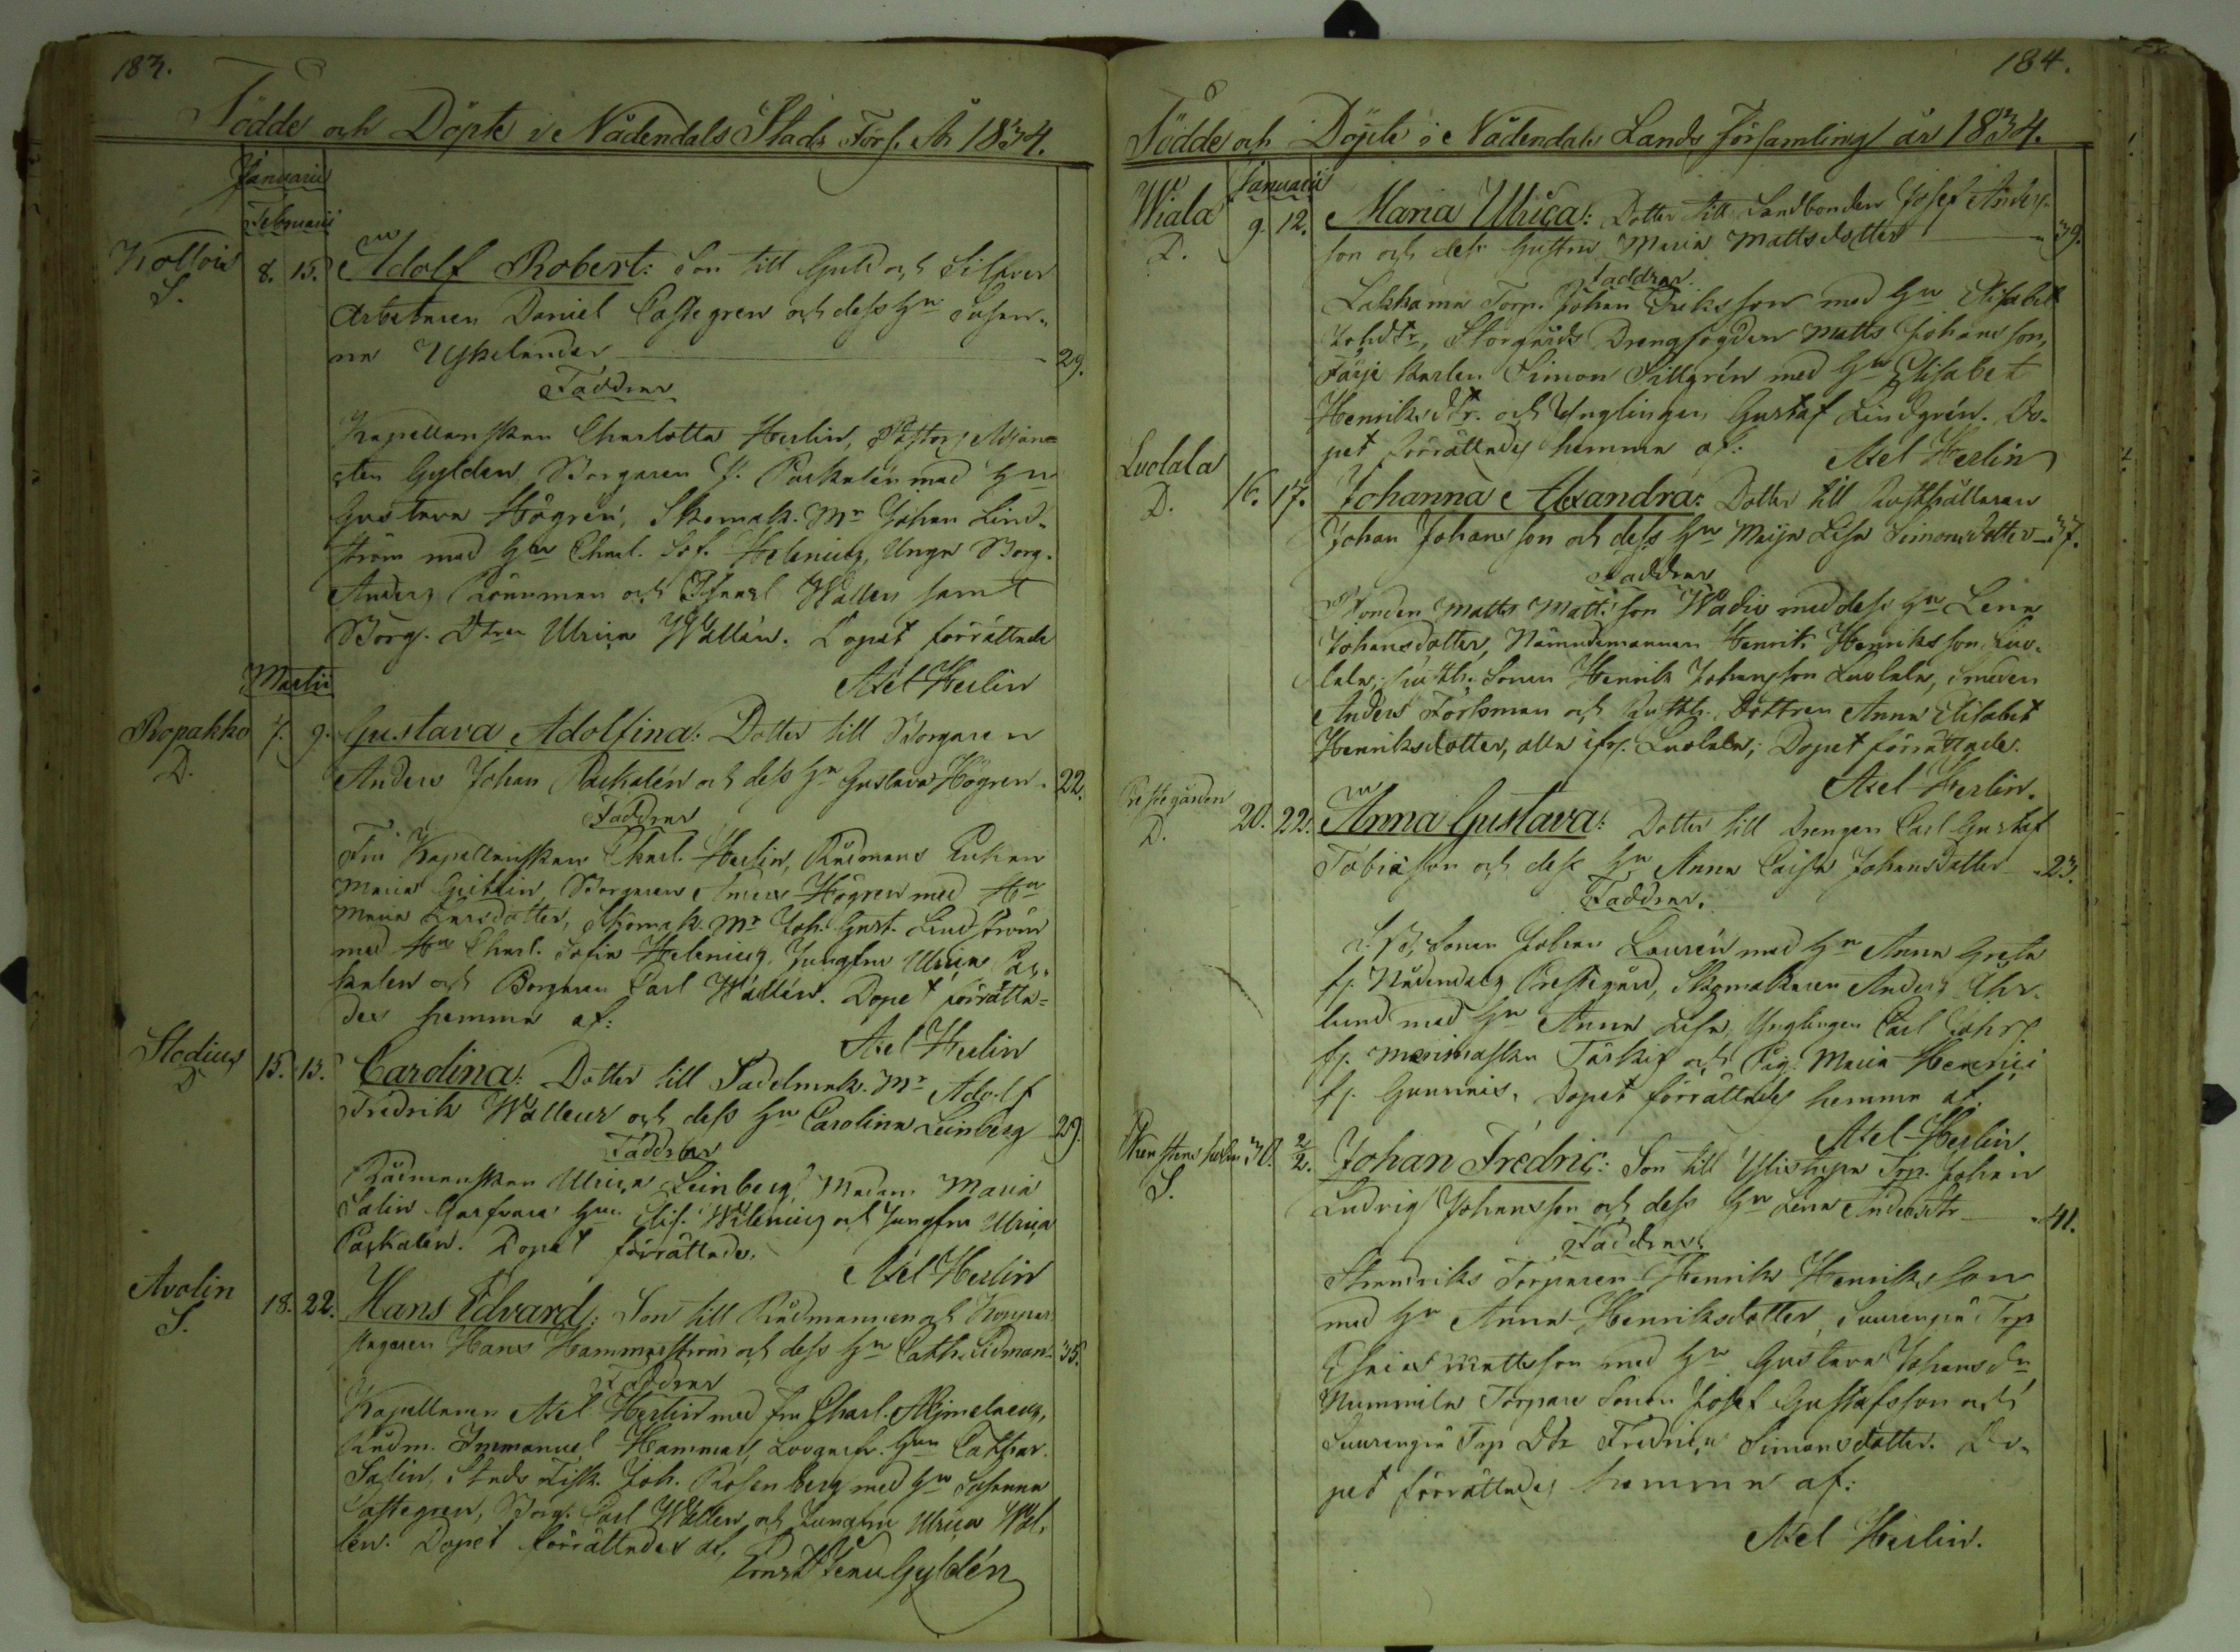 183.
Födde och Döpte i Nådendals Stads Förs. År 1834.
Januarii
Februarii
Kollois 8. 15. Adolf Robert: Son till Guld och Silfver
S.
Arbetaren Daniel Castegren och dess Hu Susan-
na Uskelander 29.
Faddrar
Kapellanskan Charlotta Herlin, Pastors Adjunc-
ten Gylden, Borgaren J. Paskalén med Hu
Gustava Högren, Skomak. Mr Johan Lind-
ström med Hu Charl. Sof. Helenius, Unga Borg.
Anders Rönnman och Carl Wallen samt
Borg. Dtren Ulrica Wallén. Dopet förrättade
Axel Herlin
Martii
Ropakko 7. 9. Gustava Adolfina: Dotter till Borgaren
D.
Anders Johan Paskalén och dess Hu Gustava Högren. 22.
Faddrar
Fru Kapellanskan Charl. Herlin, Rådmans Enkan
Maria, Borgaren Högren med Hu
Maria Larsdotter, Skomak. Mr Joh. Gust. Lindström
med Hu Charl. Sofia Helenius, Jungfru Ulrica Pas-
kalen och Borgaren Carl Wallén. Dopet förrätta-
des hemma af:
Axel Herlin
Stodius 15. 15. Carolina: Dotter till Sadelmak. Mr Adolf
D
Fredrik Wallenr och dess Hu Carolina Leinberg 29.
Faddrar
Rådmanskan Ulrica Leinberg, Madam Maria
Salin, Hu Elis. Wilenius och Jungfru Ulrica
Paskalen. Dopet förrättade.
Axel Herlin
Avolin 18. 22. Hans Edvard: Son till Rådmannen och Koppar
S.
slagaren Hans Hammarström och dess Hu Cath. Sidman 35.
Faddrar
Kapellanen Axel Herlin med fru Charl. Mjmelaeus,
Rådm. Immanuel Hammar, Hu Cathar.
Salin, Stads Fisk. Joh. Rosenberg med Hu Susanna
Castegren, Borg. Carl Wallen och Jungfru Ulrica Wal-
len. Dopet förrättades af,
Gyldén
184.
Födde och Döpte i Nådendals Lands församling år 1834.
Januarii
Wiala 9. 12. Maria Ulrica: Dotter till Landbonden Josef Anders-
D.
son och dess Hustru Maria Mattsdotter 39.
Faddrar.
Lakkama Torp. Johan Eriksson med Hu Elisabet
Johdtr, Storgårds Drengfogden Matts Johansson,
Färje karlen Simon Sillgrén med Hu Elisabet
Henriksdtr. och Ynglingen Gustaf Lindgrén. Do-
pet förrättades hemma af:
Axel Herlin
Luolala 16. 17. Johanna Alexandra: Dotter till Rusthållaren
D.
Johan Johansson och dess Hu Maija Lisa Simonsdotter 37.
Faddrar
Bonden Matts Mattsson Wadio med dess Hu Lena
Johansdotter, Nämndemannen Henrik Henriksson Luo-
lala, Rusth. Sonen Henrik Johansson Luolala, Smeden
Anders Forsman och Rusth. Dottren Anna Elisabet
Henriksdotter, alla ifr. Luolala; Dopet förrättade.
Axel Herlin.
Prestegården 20. 22. Anna Gustava: Dotter till drengen Carl Gustaf
D.
Tobiasson och dess Hu Anna Caisa Johansdotter 23.
Faddrar.
Sonen Johan Laurén med Hu Anna Greta
fr. Nådendals Prestegård, Skomakaren Anders
lund med Hu Anna Lisa, Ynglingen Carl
fr. och Pig. Maria Henrici
fr. Gunnais. Dopet förrättades hemma af.
Axel Herlin.
30. 2/2. Johan Fredric: Son till Torp. Johan
S.
Ludvig Johansson och dess Hu Lena Andersdtr 41.
Faddrar.
Torparen Henrik Henriksson
med Hu Anna Henriksdotter, Torp
Esaias Mattsson med Hu Gustava Johansdr
Nummila Torpare Sonen Josef Gustafsson och
Torp Dtr Fredrica Simonsdotter. Do-
pet förrättades hemma af:
Axel Herlin.